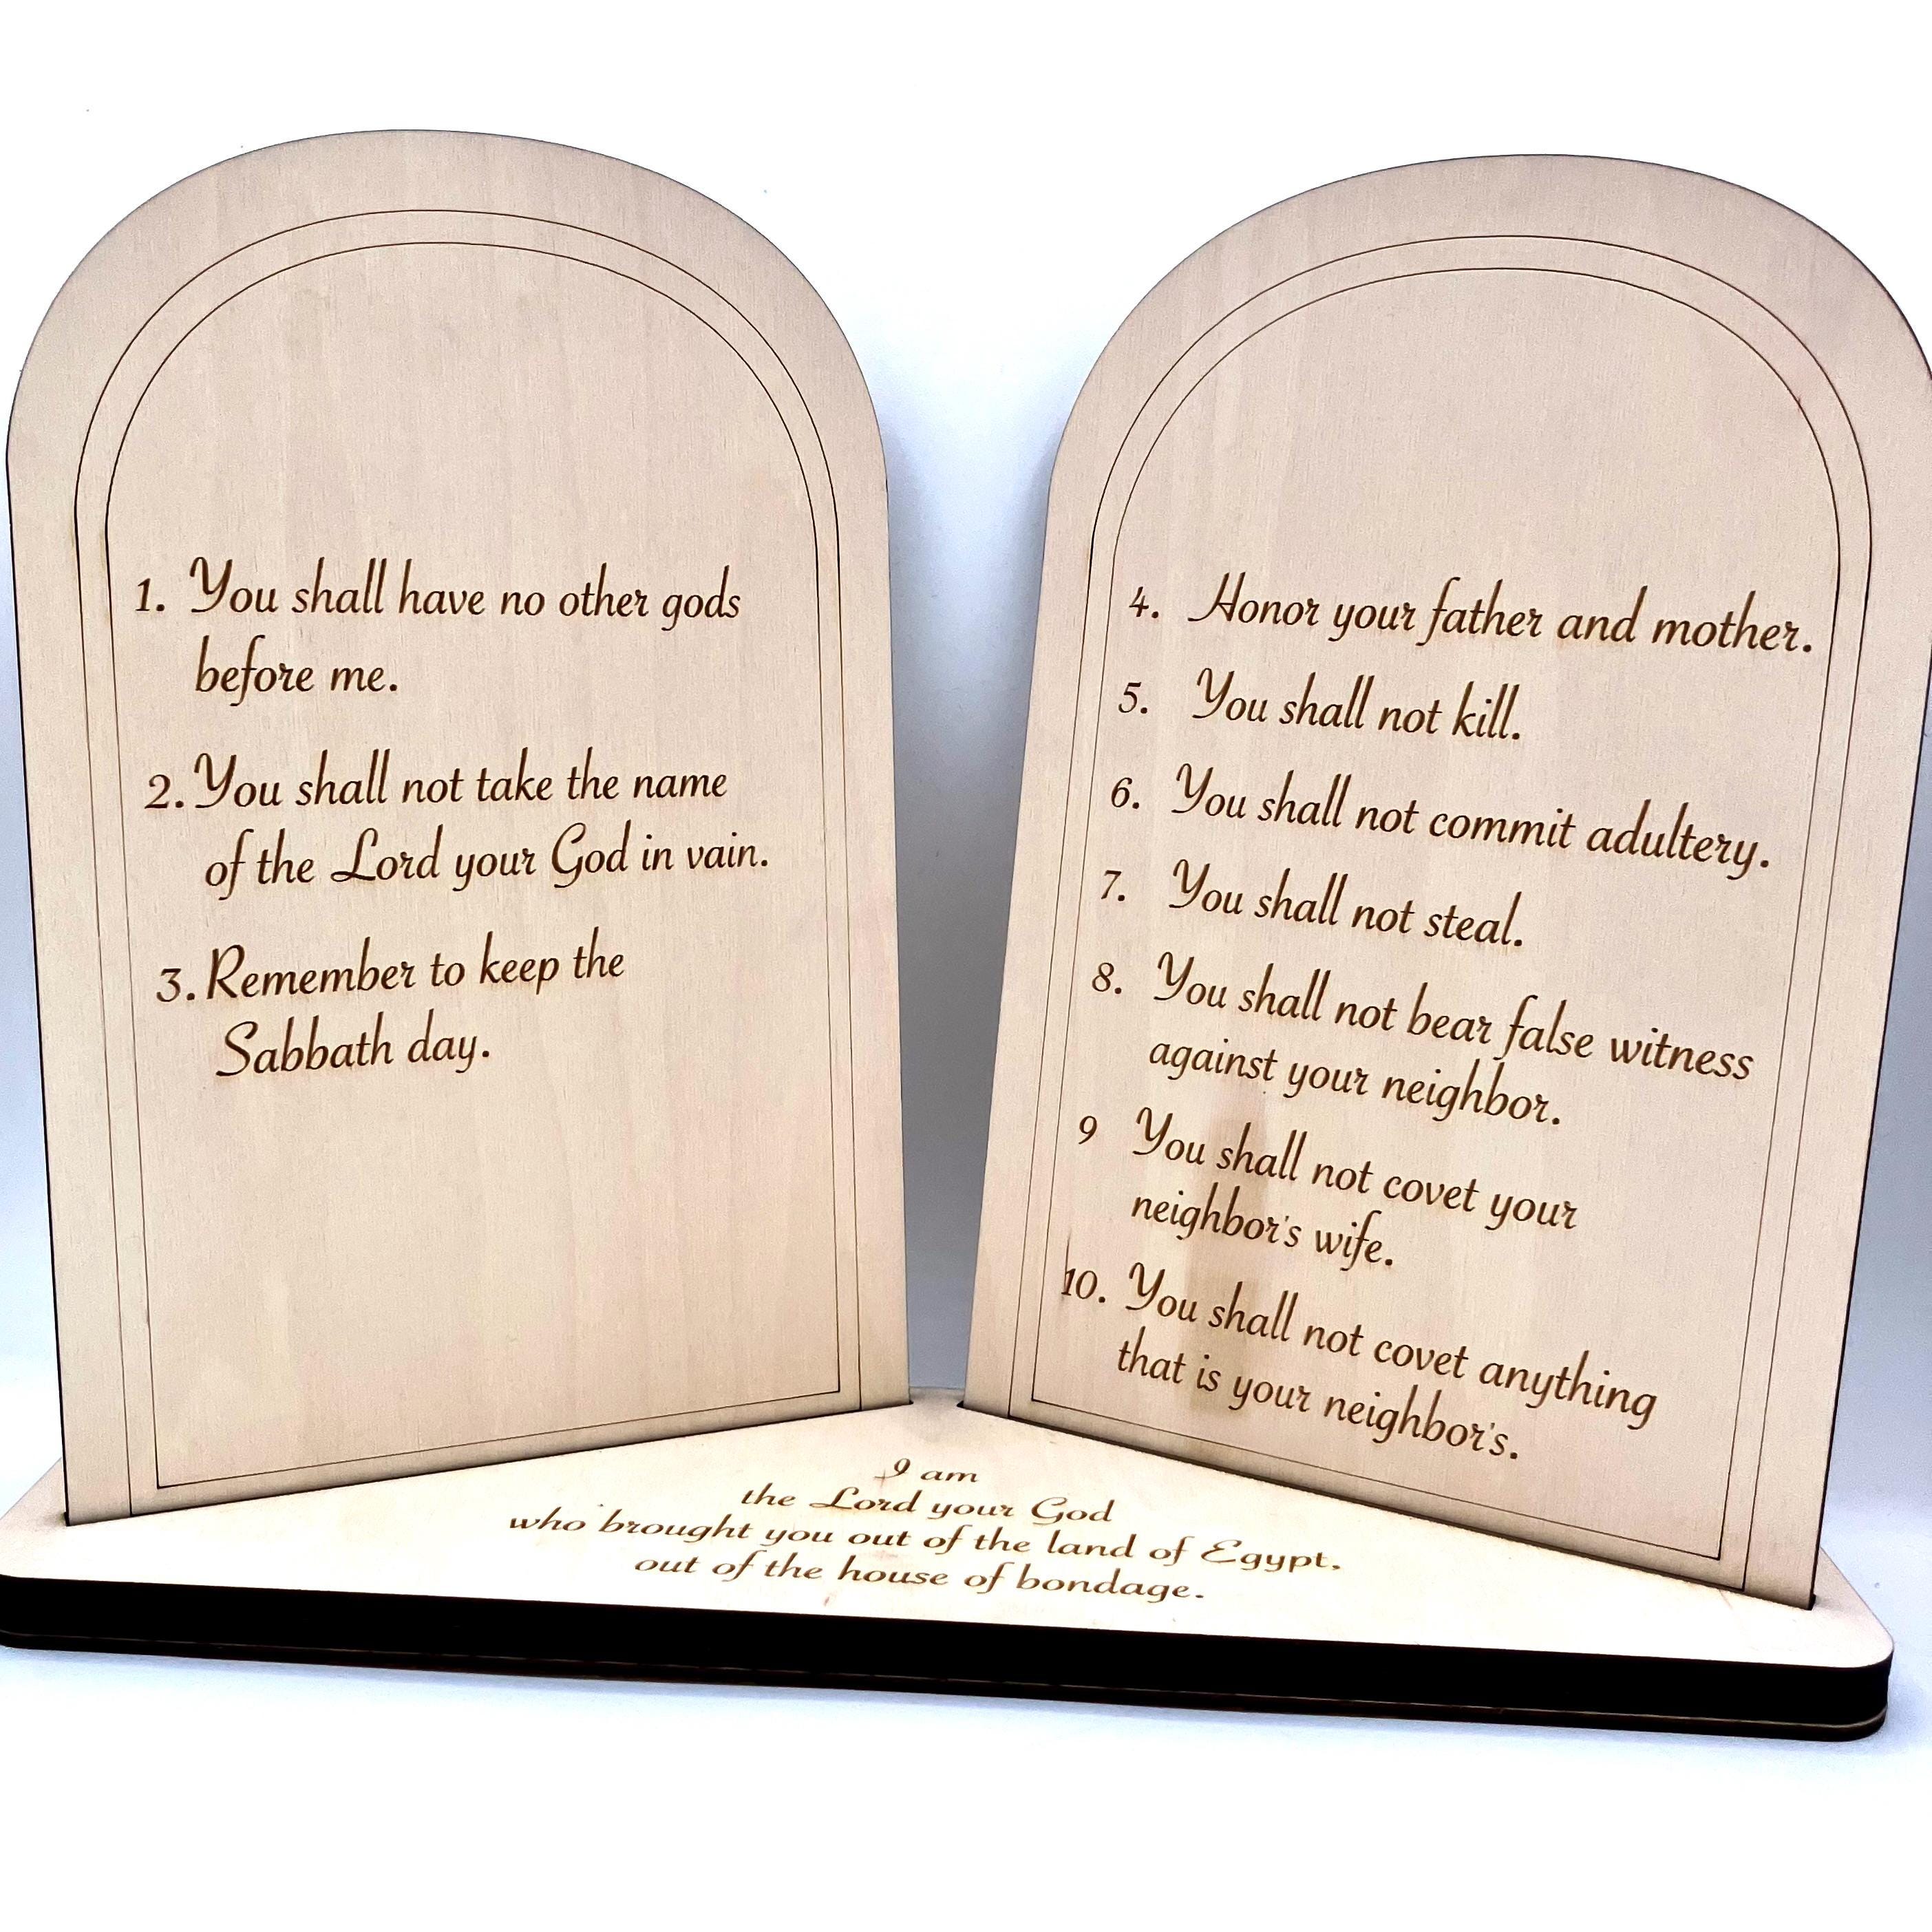 1. You shall have no other gods
before me.
2. You shall not take the name
of the Lord your God in vain.
3. Remember to keep the
Sabbath day.
4. Honor your father and mother.
5. You shall not kill.
6. You shall not commit adultery.
7. You shall not steal.
8. You shall not bear false witness
against your neighbor.
9 You shall not covet your
neighbor's wife.
10. You shall not covet anything
that is your neighbor's.
I am
the Lord your God
who brought you out of the land of Egypt,
out of the house of bondage.